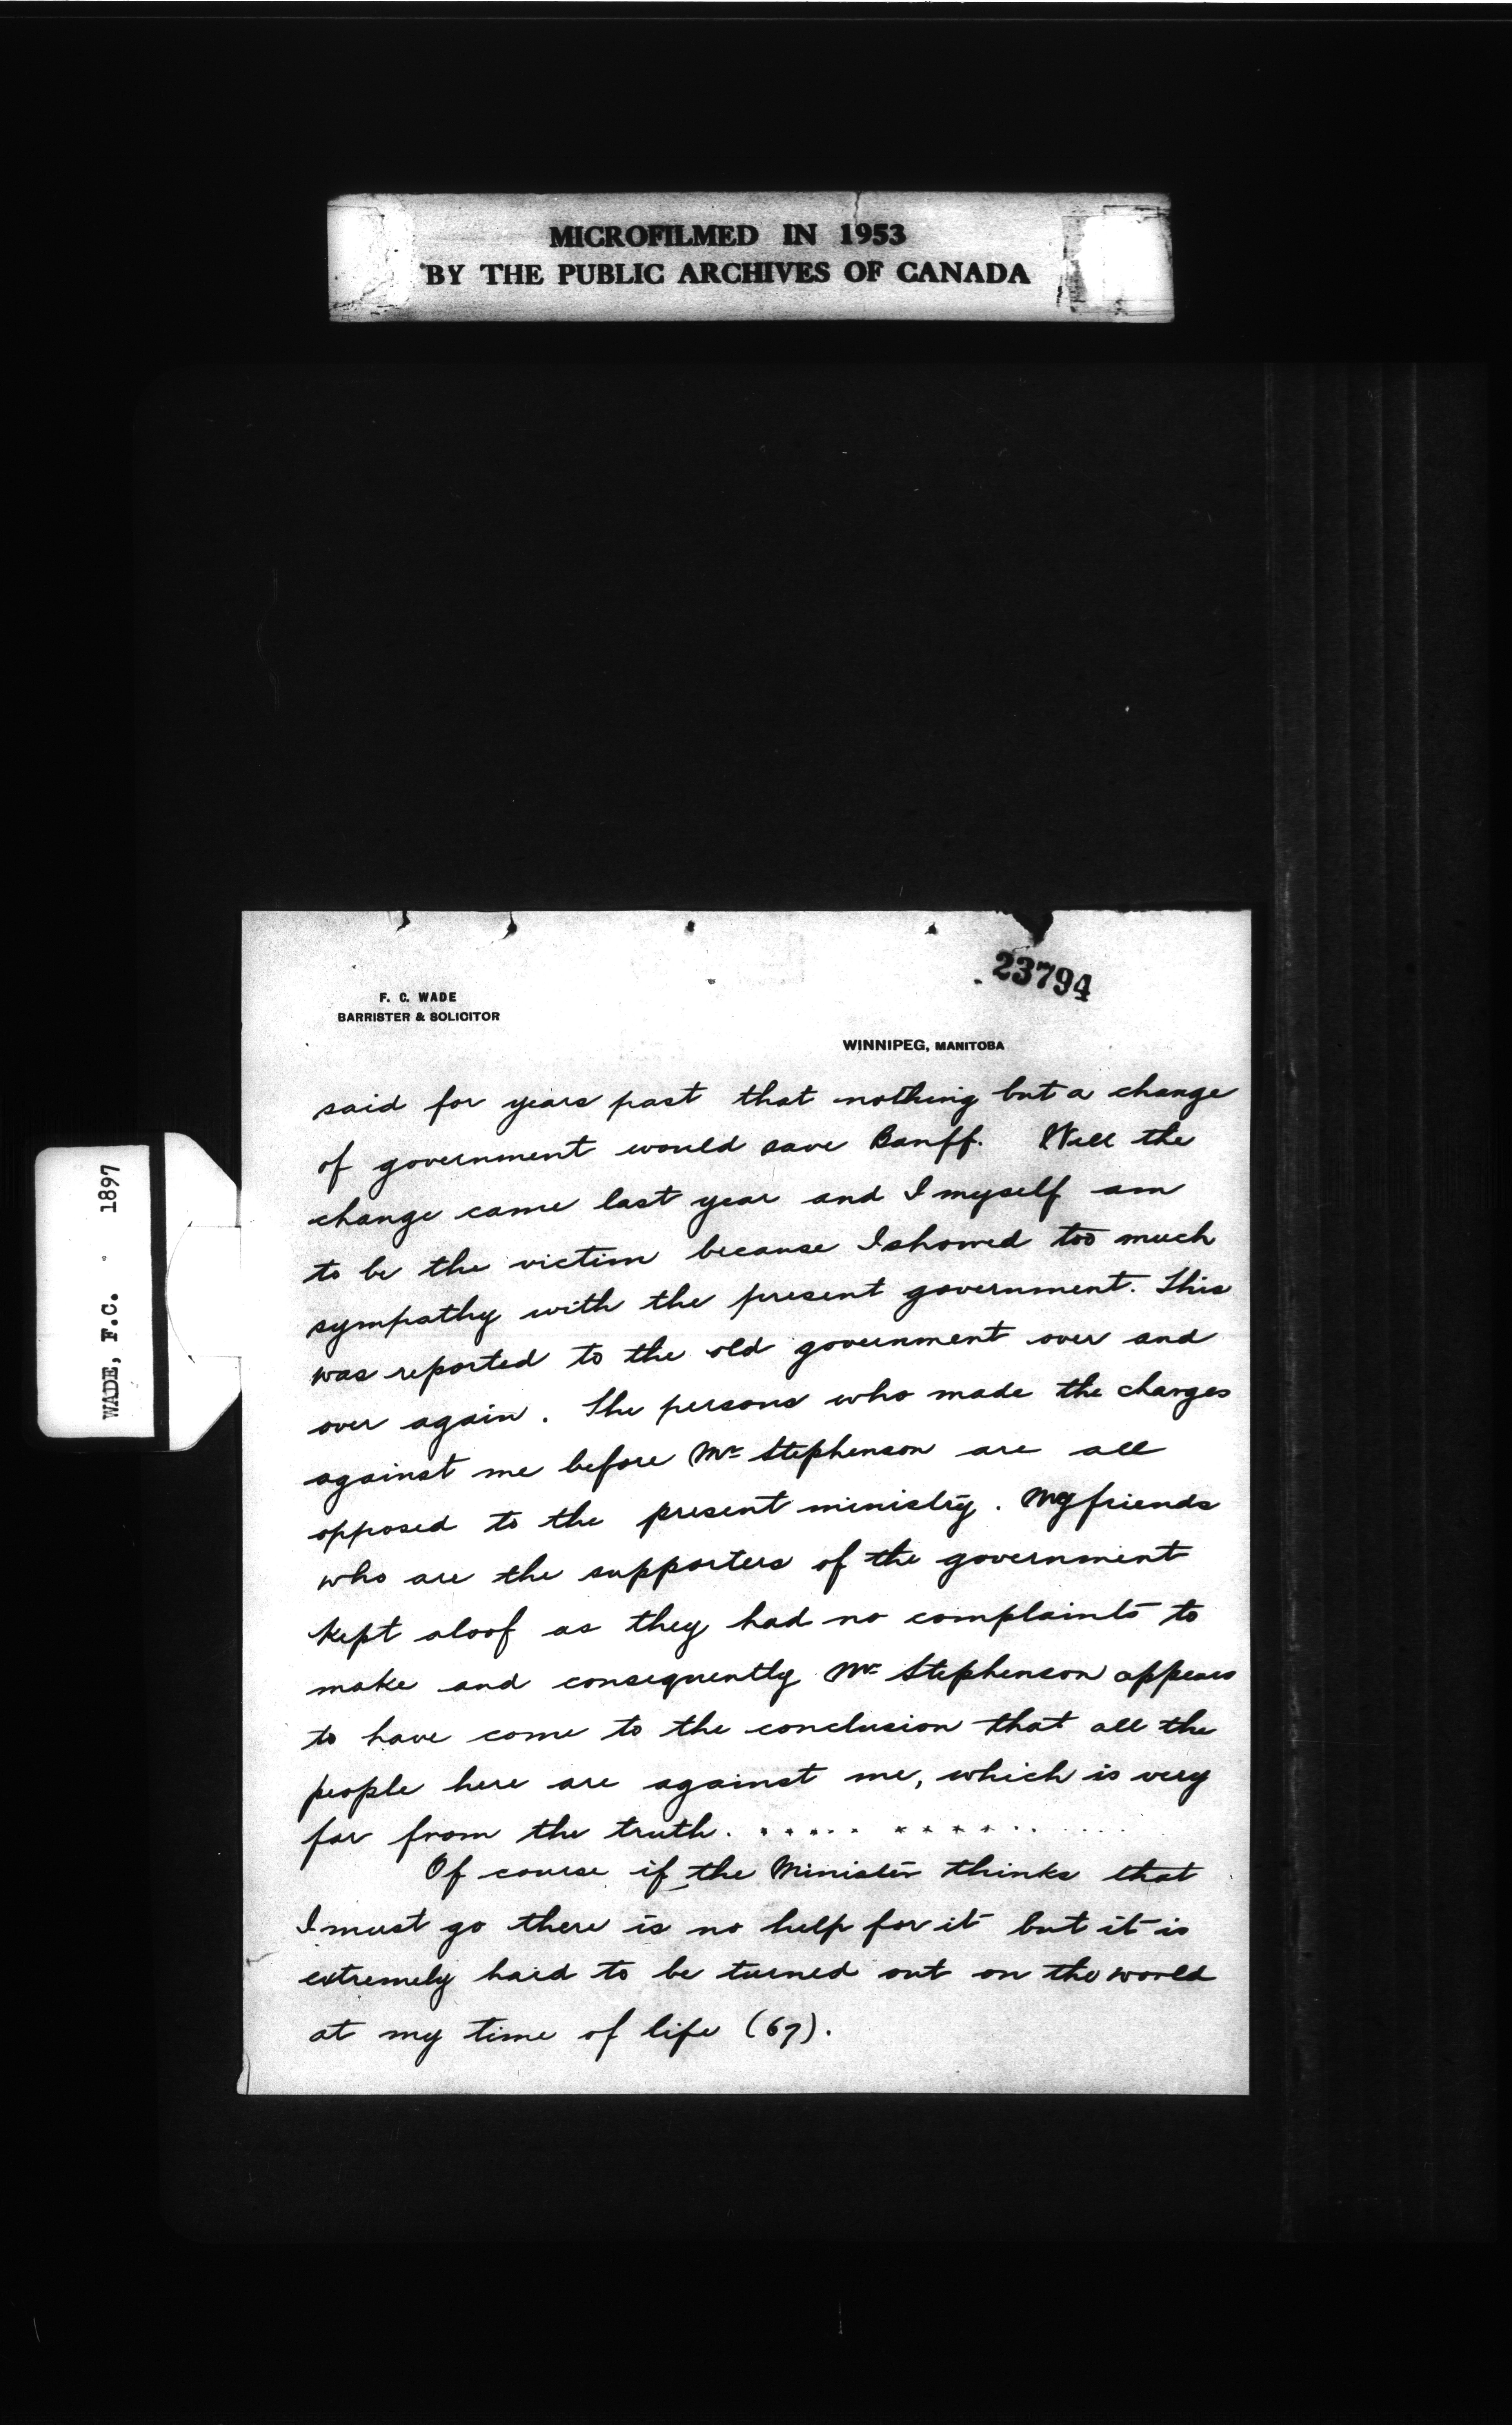 MICROFILMED IN 1953
BY THE PUBLIC ARCHIVES OF CANADA
WADE, F.C. 1897
23794
F. C. WADE
BARRISTER & SOLICITOR
WINNIPEG, MANITOBA
said for years past that nothing but a change
of government would save Banff. Well the
change came last year and I myself am
to be the victim because I showed too much
sympathy with the present government. This
was reported to the old government over and
over again. The persons who made the charges
against me before Mr Stephenson are all
opposed to the present ministry. My friends
who are the supporters of the government
kept aloof as they had no complaints to
make and consequently Mr Stephenson appears
to have come to the conclusion that all the
people here are against me, which is very
far from the truth. . . . . . * * * * * . . . . .
Of course if the Minister thinks that
I must go there is no help for it but it is
extremely hard to be turned out on the world
at my time of life (67).